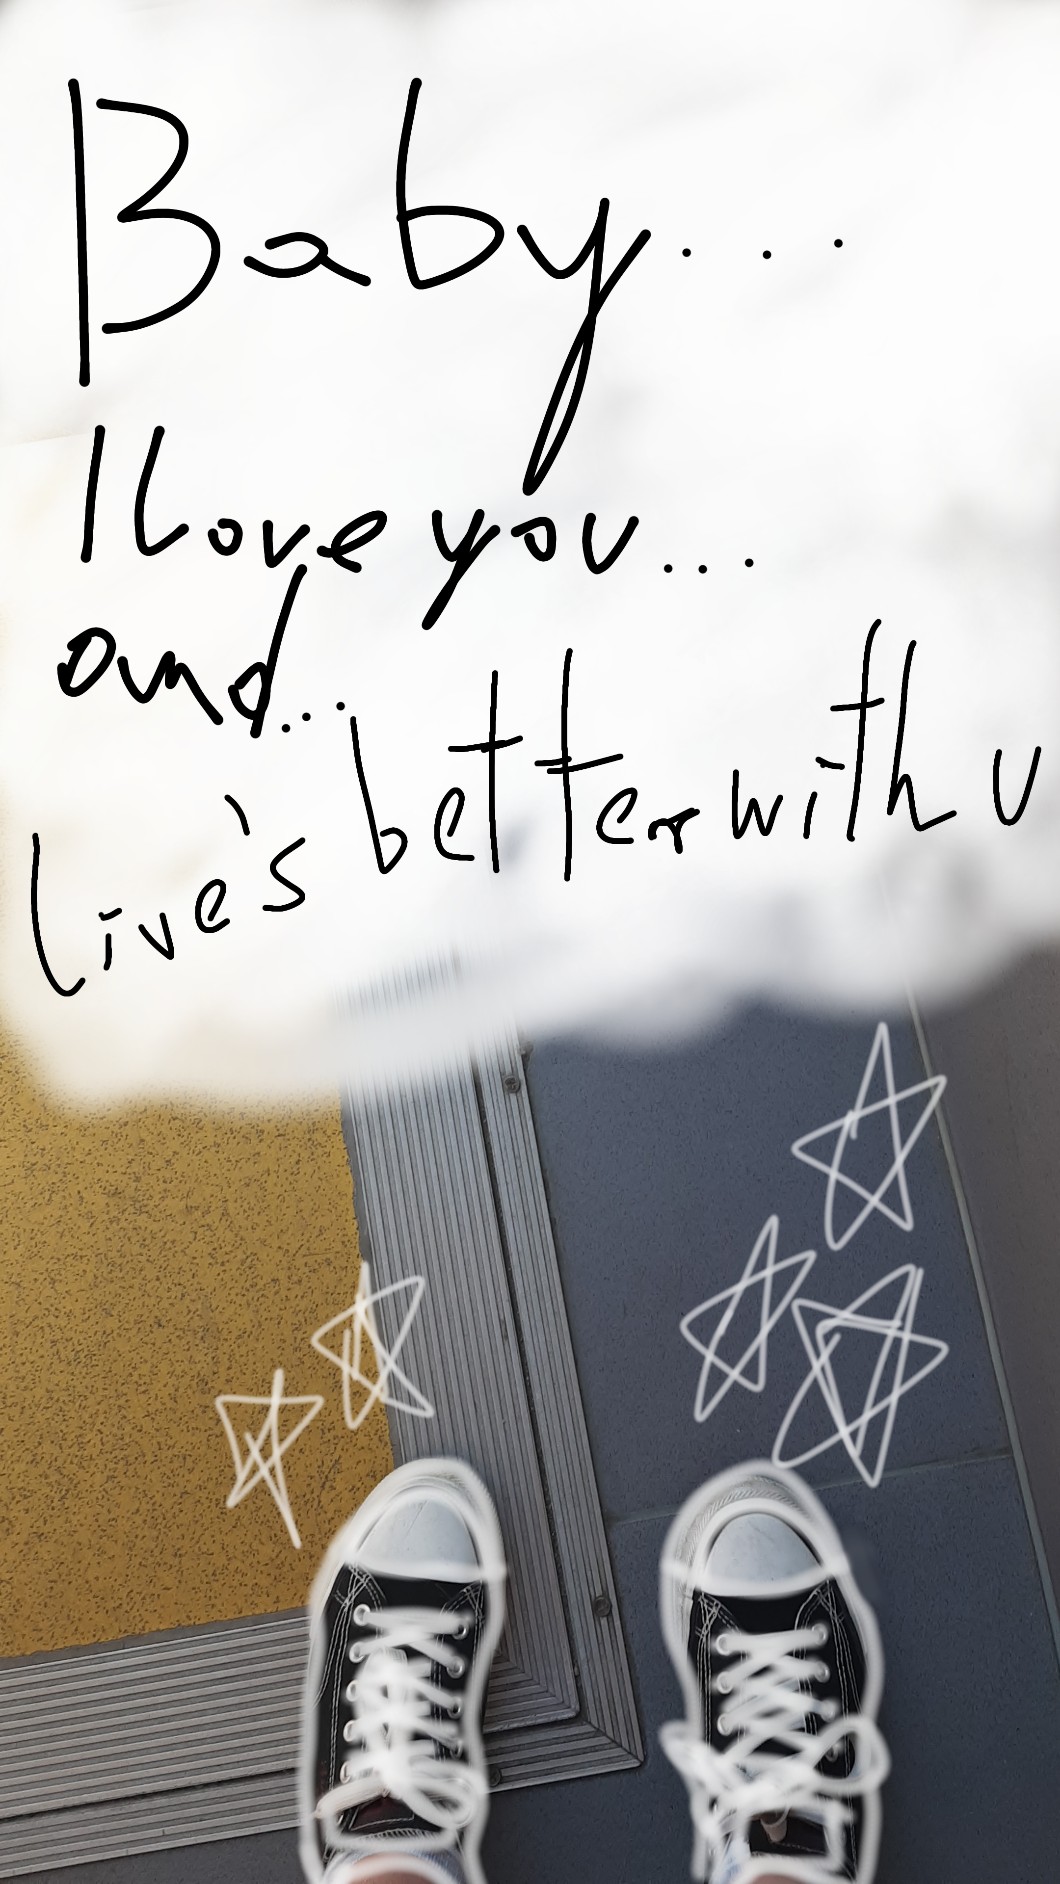 Baby...
I love you...
and...
live's better with u